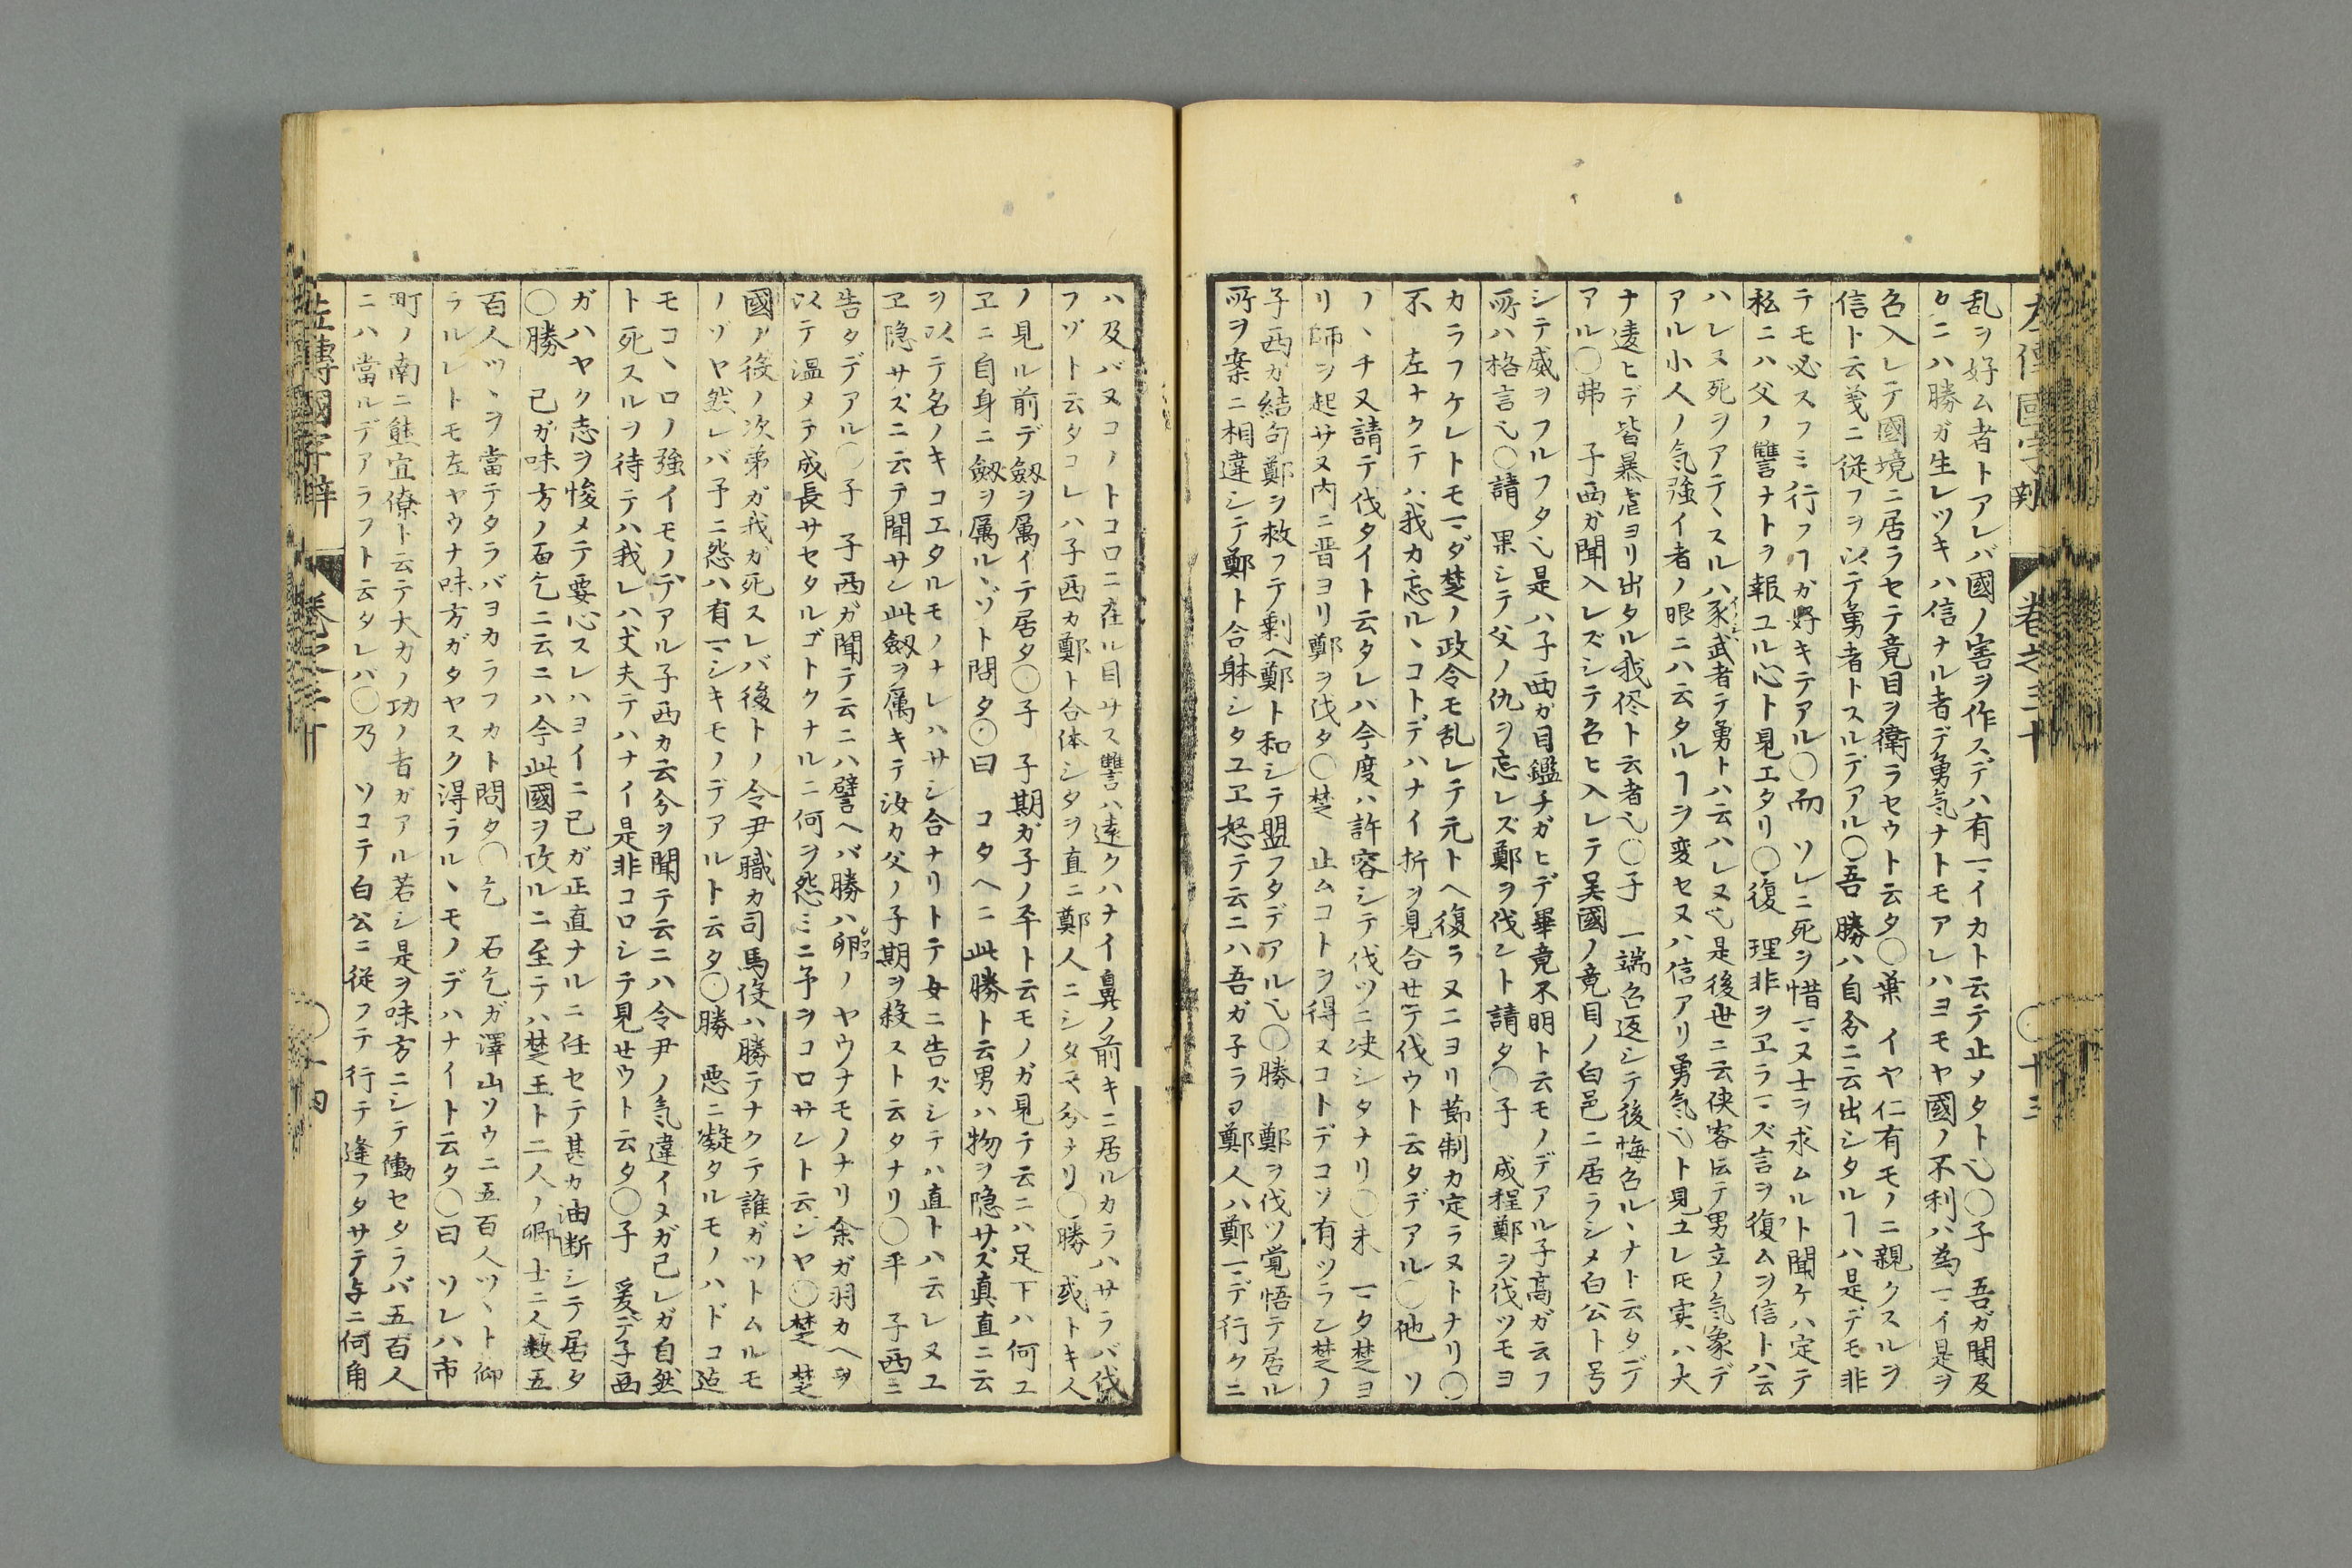 乱ヲ好ム者トアレバ國ノ害ヲ作スデハ有マイカト云テ止メタト也〇子 吾ガ聞及
タニハ勝ガ生レツキハ信ナル者デ勇気ナトモアレハヨモヤ國ノ不利ハ為マイ是ヲ
召入レテ國境ニ居ラセテ竟目ヲ衛ラセウト云タ〇葉 イヤ仁有モノニ親クスルヲ
信ト云義ニ従フヲ以テ勇者トスルデアル〇吾 勝ハ自分ニ云出シタルヿハ是デモ非
テモ必スフミ行フヿガ好キテアル〇而 ソレニ死ヲ惜マヌ士ヲ求ムルト聞ケハ定テ
私ニハ父ノ讐ナトヲ報ユル心ト見エタリ〇復 理非ヲヱラマズ言ヲ復ムヲ信トハ云
ハレヌ死ヲアテヽスルハ豕武者テ勇トハ云ハレヌ也是後世ニ云侠客伝テ男立ノ気象デ
アル小人ノ気強イ者ノ眼ニハ云タルヿヲ変セヌハ信アリ勇気也ト見ユレ𪜈実ハ大
ナ違ヒデ皆暴虐ヨリ出タル我侭ト云者也〇子 一端召返シテ後悔召ルヽナト云タデ
アル〇弗 子西ガ聞入レズシテ召ヒ入レテ吴國ノ竟目ノ白邑ニ居ラシメ白公ト号
シテ威ヲフルフタ也是ハ子西ガ目鑑チガヒデ畢竟不明ト云モノデアル子高ガ云フ
所ハ格言也〇請 果シテ父ノ仇ヲ忘レズ鄭ヲ伐シト請タ〇子 成程鄭ヲ伐ツモヨ
カラフケレトモマダ楚ノ政令モ乱レテ元トヘ復ラヌニヨリ節制カ定ラヌトナリ〇
不 左ナクテハ我カ忘ルヽコトデハナイ折ヲ見合セテ伐ウト云タデアル〇他 ソ
ノヽチ又請テ伐タイト云タレハ今度ハ許容シテ伐ツニ决シタナリ〇未 マタ楚ヨ
リ師ヲ起サヌ内ニ晋ヨリ鄭ヲ伐タ〇楚 止ムコトヲ得スコトデコソ有ツラン楚ノ
子西カ結句鄭ヲ救フテ剰ヘ鄭ト和シテ盟フタデアル也〇勝 鄭ヲ伐ツ覚悟テ居ル
所ヲ案ニ相違シテ鄭ト合躰シタユヱ怒テ云ニハ吾ガ子ラヨ鄭人ハ鄭マデ行クニ
巻之三十
〇十三
ハ及バヌコノトコロニ在ル目サス讐ハ遠クハナイ鼻ノ前キニ居ルカラハサラバ伐
フゾト云タコレハ子西カ鄭ト合体シタヲ直ニ鄭人ニシタ𠆢分ナリ〇勝 或トキ人
ノ見ル前デ劔ヲ属イテ居タ〇子 子期ガ子ノ平ト云モノガ見テ云ニハ足下ハ何ユ
ヱニ自身ニ劔ヲ属ルヽゾト問タ〇曰 コタヘニ此勝ト云男ハ物ヲ隠サズ真直ニ云
ヲ以テ名ノキコエタルモノナレハサシ合ナリトテ女ニ告ズシテハ直トハ云レヌユ
ヱ隠サズニ云テ聞サン此劔ヲ属キテ汝カ父ノ子期ヲ殺スト云タナリ〇平 子西ニ
告タデアル〇子 子西ガ聞テ云ニハ譬ヘバ勝ハ卵ノヤウナモノナリ余ガ羽カヘヲ
以テ温メテ成長サセタルゴトクナルニ何ヲ怨ミニ予ヲコロサント云ジヤ〇楚 楚
國ノ役ノ次弟ガ我ガ死スレバ後トノ令尹職カ司馬役ハ勝テナクテ誰ガツトムルモ
ノゾヤ然レバ予ニ怨ハ有マシキモノデアルト云タ〇勝 悪ニ凝タルモノハドコ迠
モコヽロノ強イモノデアル子西カ云分ヲ聞テ云ニハ令尹ノ気違イヌガ己レガ自然
ト死スルヲ待テハ我レハ丈夫テハナイ是非コロシテ見セウト云タ〇子 爰デ子西
ガハヤク志ヲ悛メテ要心スレハヨイニ己ガ正直ナルニ任セテ甚カ油断シテ居タ
〇勝 己ガ味方ノ石乞ニ云ニハ今此國ヲ攻ルニ至テハ楚王ト二人ノ卿士ニ人数五
百人ツヽヲ當テタラバヨカラフカト問タ〇乞 石乞ガ澤山ソウニ五百人ツヽト仰
ラルレトモ左ヤウナ味方ガタヤスク得ラルヽモノデハナイト云タ〇曰 ソレハ市
町ノ南ニ熊宜僚ト云テ大力ノ功ノ者ガアル若シ是ヲ味方ニシテ働セタラバ五百人
ニハ當ルデアラフト云タレバ〇乃 ソコテ白公ニ従フテ行テ逢フタサテ与ニ何角
左傳國字辯
巻之三十
〇十四